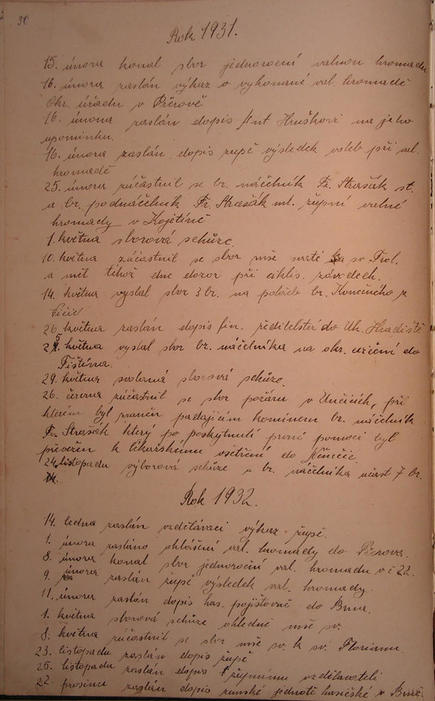 30
Rok 1931.
15. února konal sbor jednoroční valnou hromadu
16. února zaslán výkaz o vykonané val. hromadě
Okr. úřadu v Přerově
16. února zaslán dopis Ant Hruškovi na jeho
upomínku.
16. února zaslán dopis župě výsledek voleb při val.
hromadě
25. února zúčastnil se br. náčelník Fr. Strašák st.
a br. podnáčelník Fr. Strašák ml. župní valné
hromady v Kojetíně
1. května sborová schůze.
10. května zúčastnil se sbor mše svaté sv. Flol.
a měl téhož dne dozor při ciklis. závodech.
14. května vyslal sbor 3 br. na pohřeb br. Konečného z
26. května zaslán dopis fin. ředitelství do Uh. Hradiště
května vyslal sbor br. náčelníka na okr. cvičení do
Tištína.
29. května svolaná sborová schůze.
26. června zúčastnil se sbor požáru v Uhřičicích, při
kterém byl raněn padajícím komínem br. náčelník
Fr. Strašák který po poskytnutí první pomoci byl
převežen k lékařskému ošetření do
24. listopadu výborová schůze u br. náčelníka účast 7 br.
Rok 1932.
14. ledna zaslán vzdělávací výkaz župě.
1. února zasláno ohlášení val. hromady do Přerova.
8. února konal sbor jednoroční val. hromadu v č 22.
9. února zaslán župě výsledek val. hromady.
11. února zaslán dopis has. pojišťovně do Brna.
1. května sborová schůze ohledně mše sv.
8. května zúčastnil se sbor mše sv. k sv. Floriánu
23. listopadu zaslán dopis župě
25. listopadu zaslán dopis župnímu vzdělavateli
22. prosince zaslán dopis zemské jednotě hasičské v Brně.